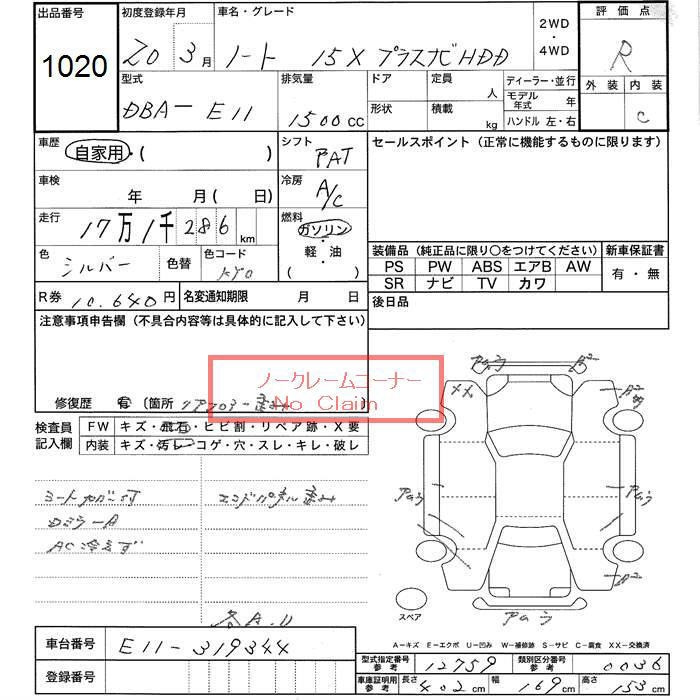 出品番号
1020
初度登録年月
20 3月
車名・グレード
ノート 15X プラスナビHDD
2WD
・
4WD
評価点
R
外装 内装
C
型式
DBA-E11
排気量
1500cc
ドア
形状
定員
人
積載
kg
ディーラー・並行
モデル年式 年
ハンドル 左・右
車歴
自家用・( )
シフト
FAT
セールスポイント (正常に機能するものに限ります)
車検
年 月( 日)
冷房
A/C
走行
17万1千286km
燃料
ガソリン
・
軽・油
( )
色
シルバー
色替
色コード
KY0
装備品 (純正品に限り○をつけてください)
PS PW ABS エアB AW
SR ナビ TV カワ
新車保証書
有・無
R券 10,640円
名変通知期限 月 日
後日品
注意事項申告欄 (不具合内容等は具体的に記入して下さい)
ノークレームコーナー
No Claim
修復歴 有 〔箇所
検査員記入欄
FW キズ・飛石・ヒビ割・リペア跡・X要
内装 キズ・汚レ・コゲ・穴・スレ・キレ・破レ
エンドパネル歪み
AC冷えず
XX
A2
アムラ
スペア
A-キズ E-エクボ U-凹み W-補修跡 S-サビ C-腐食 XX-交換済
車台番号
E11-319344
登録番号
型式指定番号参考
12759
類別区分番号参考
0036
車庫証明用参考
長さ 402cm
幅 169cm
高さ 153cm